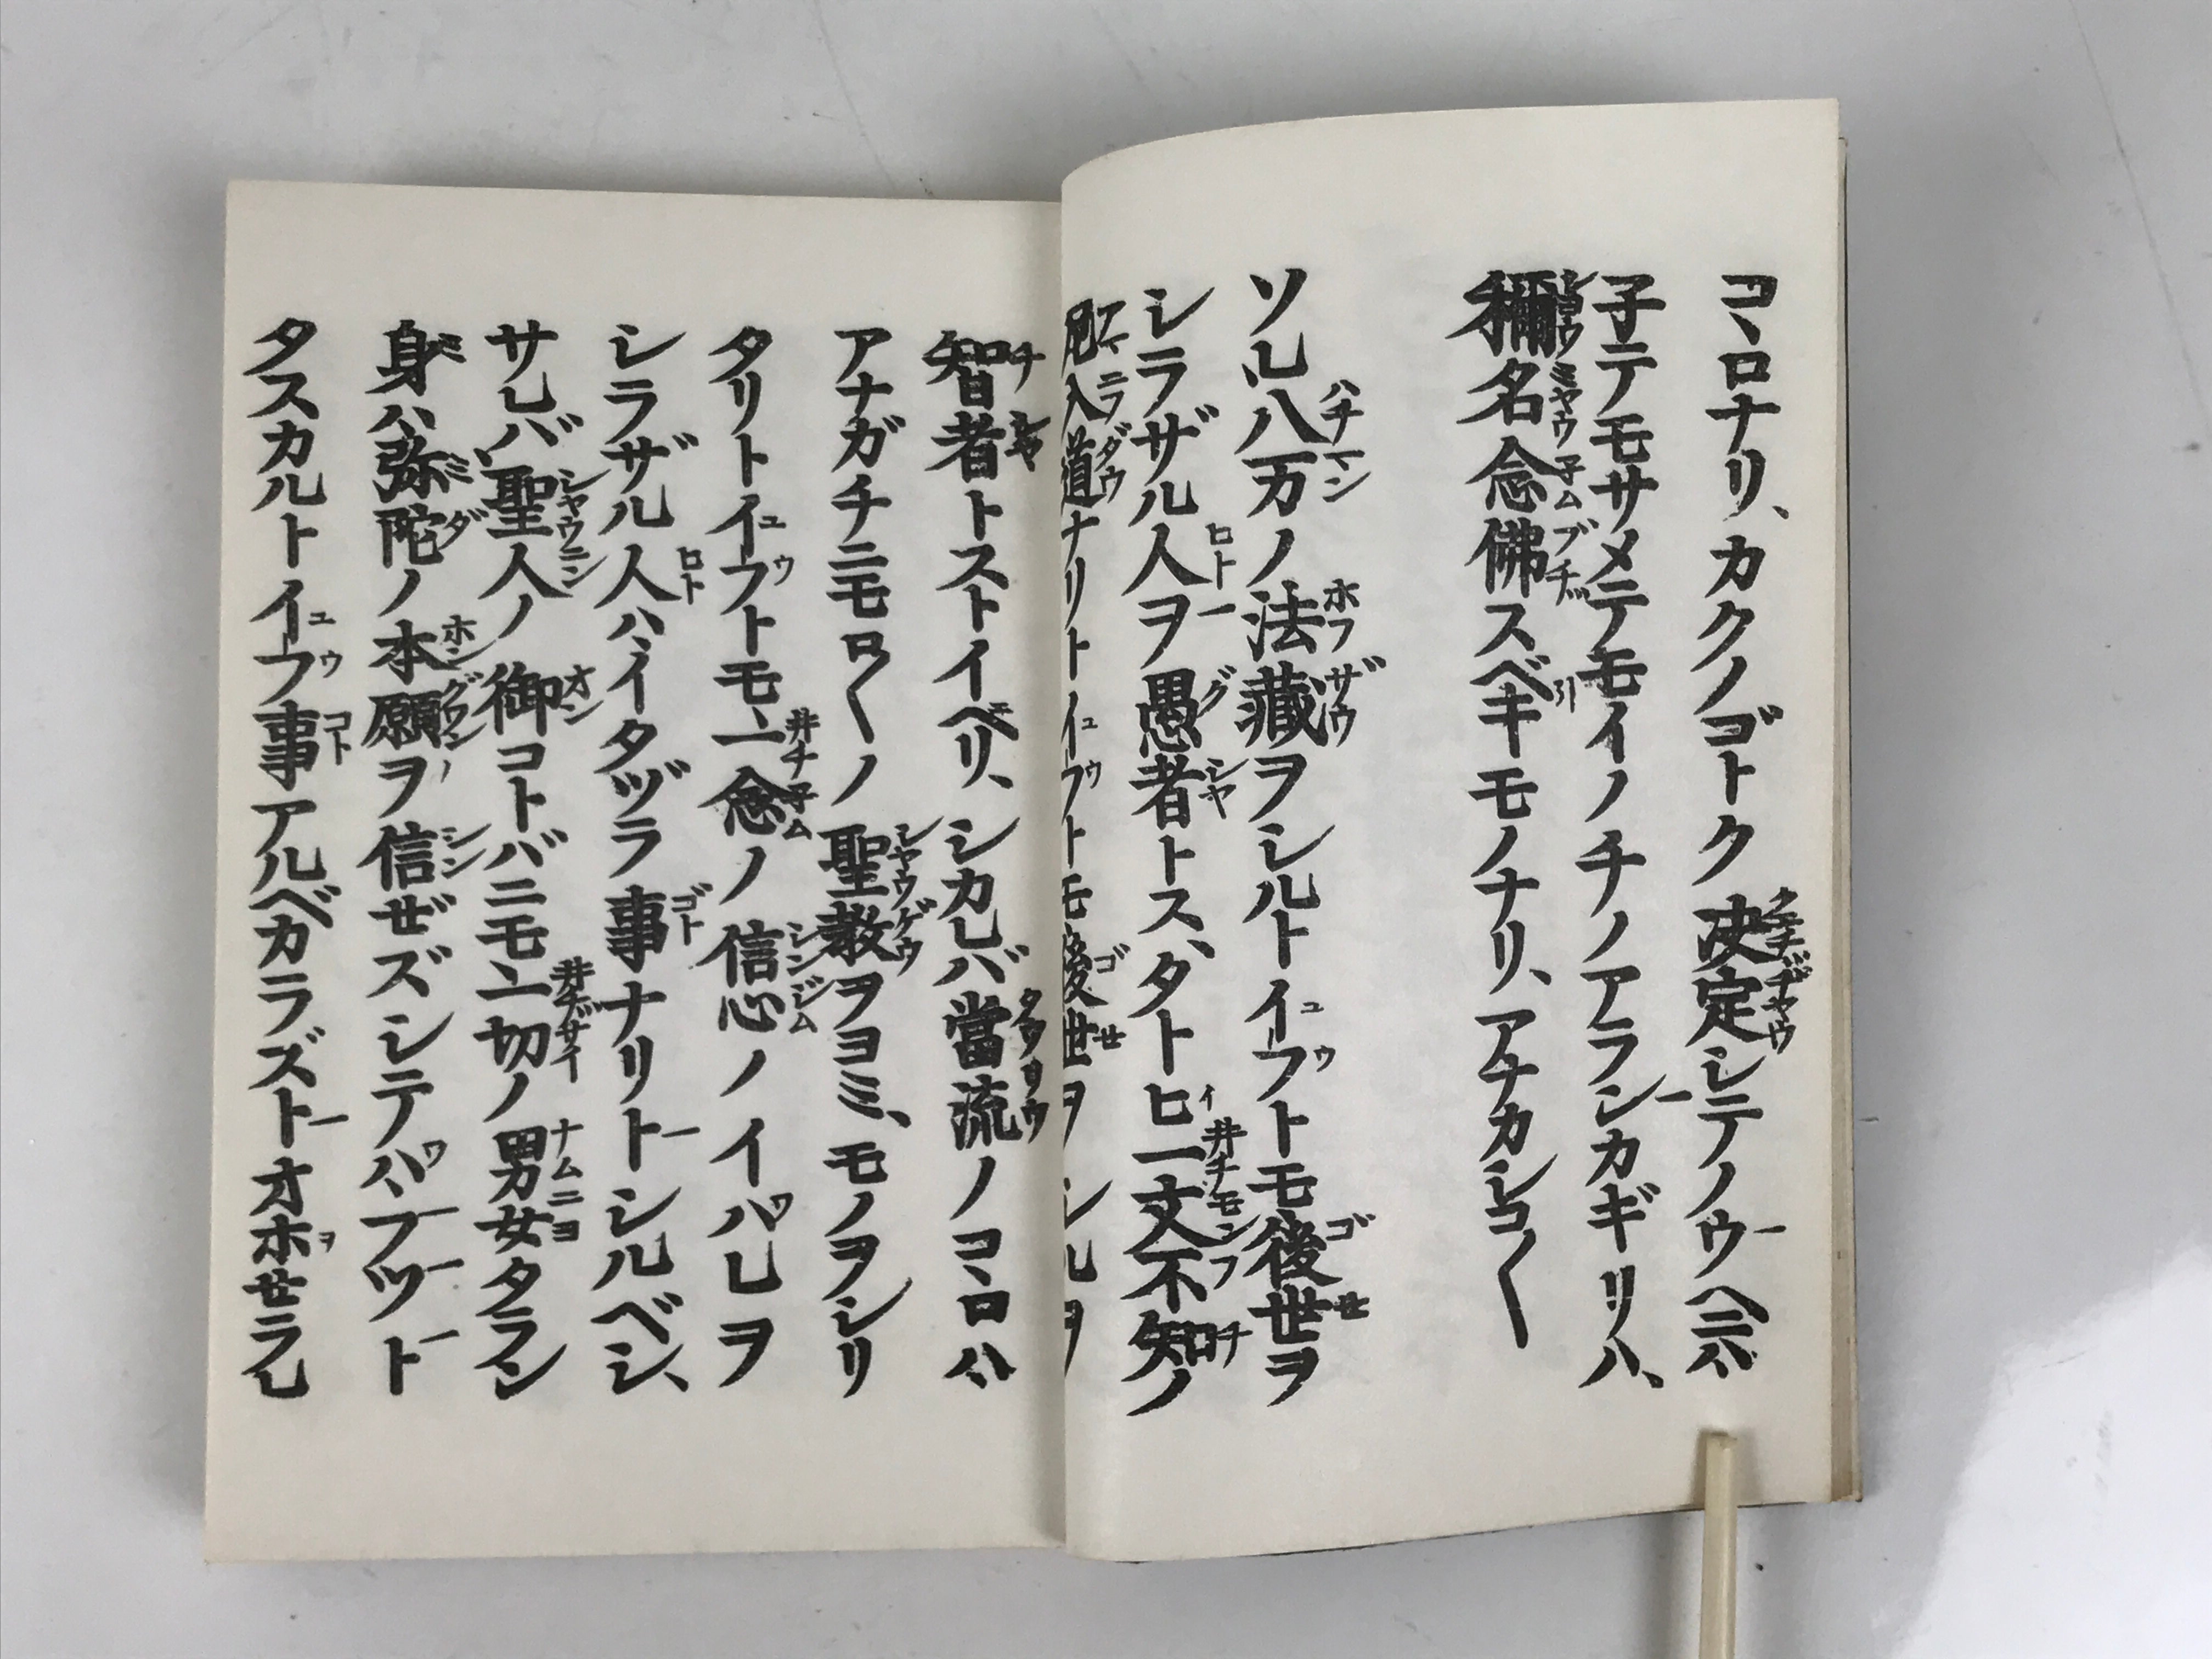 コヽロナリ、カクノゴトク決定シテノウヘニハ
子テモサメテモイノチノアランカギリハ、
稱名念佛スベキモノナリ、アナカシコ〱
ソレ八万ノ法藏ヲシルトイフトモ後世ヲ
シラザル人ヲ愚者トス、タトヒ一文不知ノ
尼入道ナリトイフトモ後世ヲシルヲ
智者トストイヘリ、シカレバ當流ノコヽロハ
アナガチニモロ〱ノ聖教ヲヨミ、モノヲシリ
タリトイフトモ一念ノ信心ノイハレヲ
シラザル人ハイタヅラ事ナリトシルベシ、
サレバ聖人ノ御コトバニモ一切ノ男女タラン
身ハ弥陀ノ本願ヲ信ぜズシテハフツト
タスカルトイフ事アルベカラズトオホせラレ